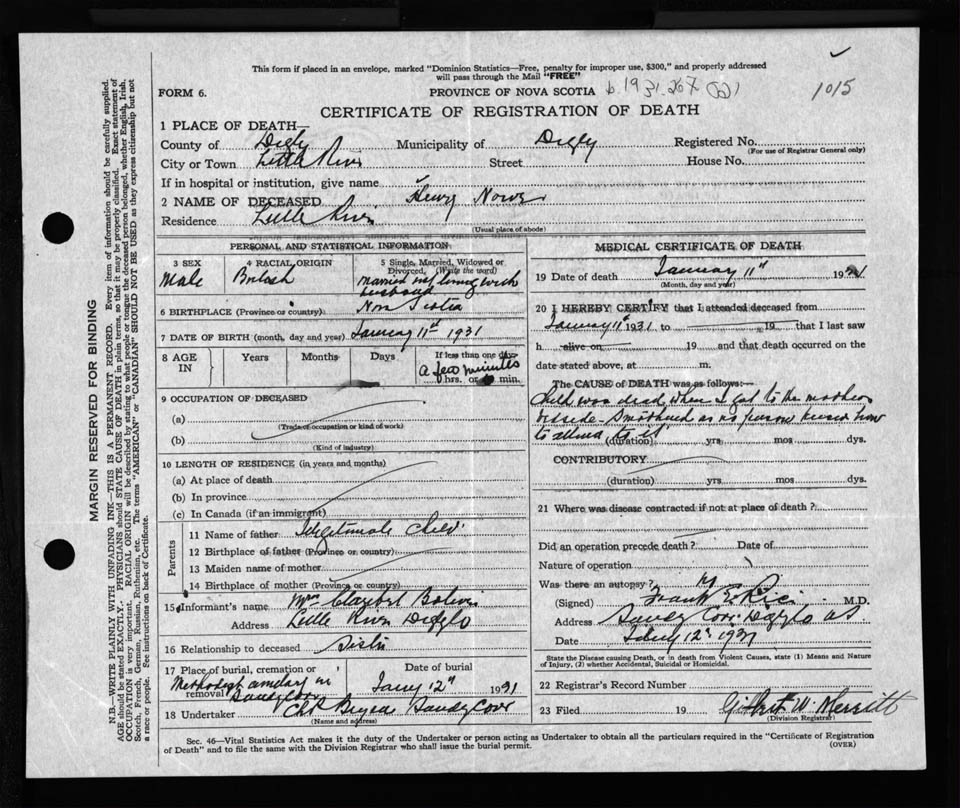 This form if placed in an envelope, marked "Dominion Statistics—Free, penalty for improper use, $300," and properly addressed
will pass through the Mail "FREE"
1015
FORM 6.
PROVINCE OF NOVA SCOTIA
CERTIFICATE OF REGISTRATION OF DEATH
1 PLACE OF DEATH—
County of Digby Municipality of Digby Registered No.
(For use of Registrar General only)
City or Town Little River Street House No.
If in hospital or institution, give name
2 NAME OF DECEASED Henry
Residence Little River
(Usual place of abode)
PERSONAL AND STATISTICAL INFORMATION
3 SEX
Male
4 RACIAL ORIGIN
British
5 Single, Married, Widowed or
Divorced, (Write the word)
Married not living with
husband
6 BIRTHPLACE (Province or country) Nova Scotia
7 DATE OF BIRTH (month, day and year) January 11th 1931
8 AGE
IN
Years Months Days
If less than one day
a few minutes
hrs. or min.
9 OCCUPATION OF DECEASED
(a)
(Trade, occupation or kind of work)
(b)
(Kind of industry)
10 LENGTH OF RESIDENCE (in years and months)
(a) At place of death
(b) In province
(c) In Canada (if an immigrant)
Parents
11 Name of father Illegitimate Child
12 Birthplace of father (Province or country)
13 Maiden name of mother
14 Birthplace of mother (Province or country)
15 Informant's name Mrs
Address Little River Digby Co
16 Relationship to deceased Sister
17 Place of burial, cremation or
removal
Methodist cemetery in
Sandy Cove
Date of burial
Jany 12th 1931
18 Undertaker Sandy Cove
(Name and address)
MEDICAL CERTIFICATE OF DEATH
19 Date of death January 11th 1931
(Month, day and year)
20 I HEREBY CERTIFY that I attended deceased from
January 11th 1931 to 19 that I last saw
h alive on 19 and that death occurred on the
date stated above, at m.
The CAUSE of DEATH was as follows:
Child was dead when I got to the mothers
bedside. Smothered as no person knew how
to attend to it
(duration) yrs. mos. dys.
CONTRIBUTORY
(duration) yrs. mos. dys.
21 Where was disease contracted if not at place of death?
Did an operation precede death? Date of
Nature of operation
Was there an autopsy?
(Signed) Frank E. Rice M.D.
Address Sandy Cove Digby Co NS
Date 12th 1931
State the Disease causing Death, or in death from Violent Causes, state (1) Means and Nature
of Injury, (2) whether Accidental, Suicidal or Homicidal.
22 Registrar's Record Number
23 Filed 19 Gilbert W. Merritt
(Division Registrar)
Sec. 46—Vital Statistics Act makes it the duty of the Undertaker or person acting as Undertaker to obtain all the particulars required in the "Certificate of Registration
of Death" and to file the same with the Division Registrar who shall issue the burial permit.
(OVER)
MARGIN RESERVED FOR BINDING
N.B.—WRITE PLAINLY WITH UNFADING INK—THIS IS A PERMANENT RECORD. Every item of information should be carefully supplied.
AGE should be stated EXACTLY. PHYSICIANS should STATE CAUSE OF DEATH in plain terms, so that it may be properly classified. Exact statement of
OCCUPATION is very important. RACIAL ORIGIN will be described by stating to what people or tongue the deceased person belonged, whether English, Irish,
Scotch, French, German, Russian, Ruthenian, etc. The terms "AMERICAN" or "CANADIAN" SHOULD NOT BE USED as they express citizenship but not
a race or people. See instructions on back of Certificate.